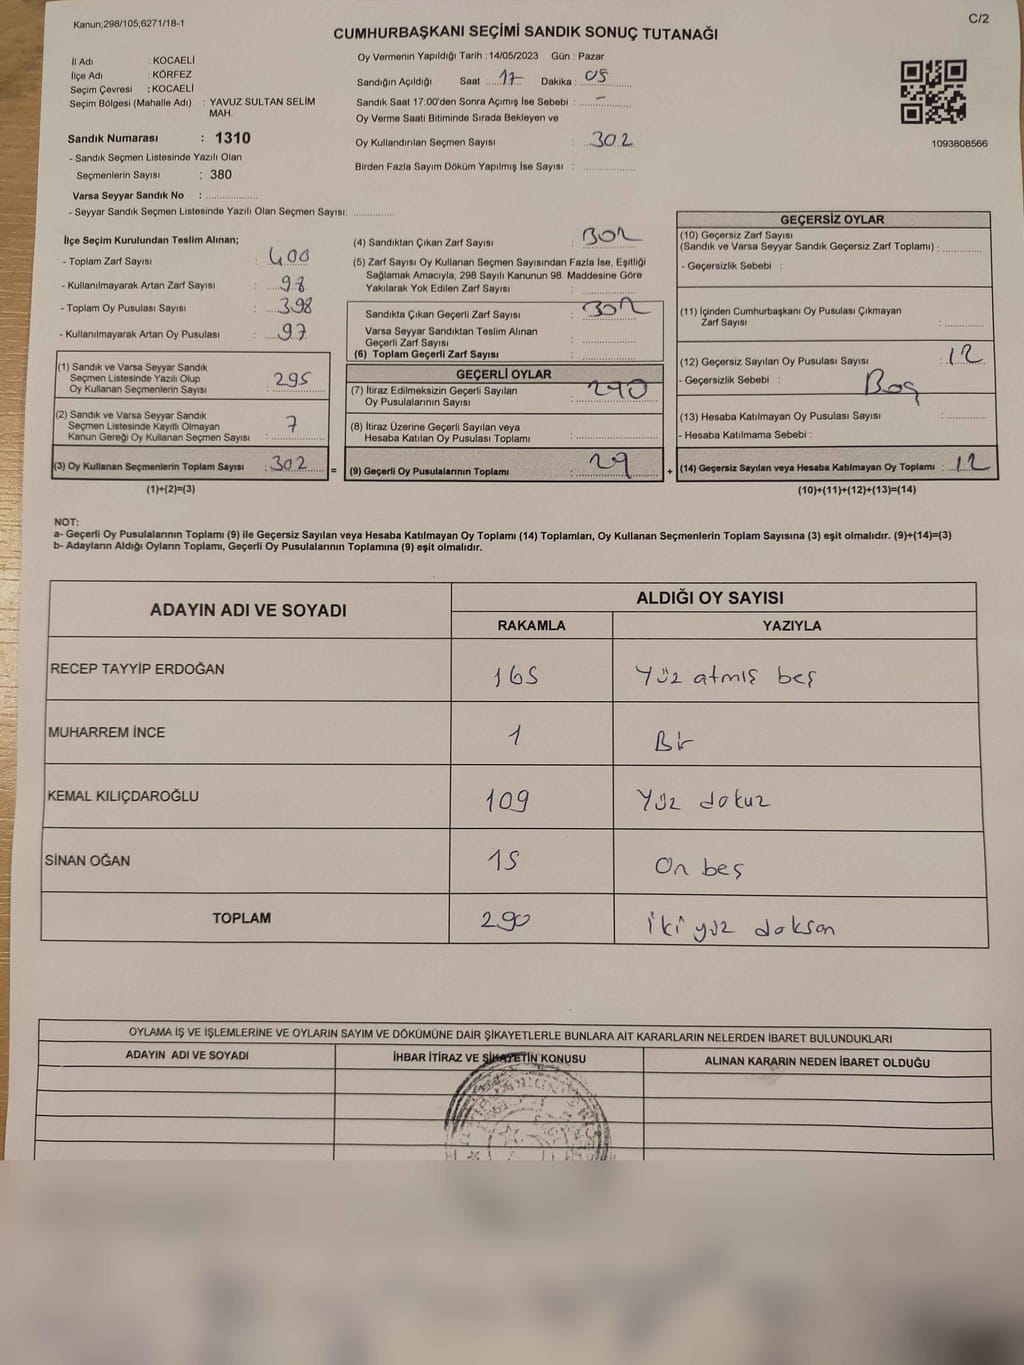 Kanun;298/105;6271/18-1
C/2
CUMHURBAŞKANI SEÇİMİ SANDIK SONUÇ TUTANAĞI
İl Adı : KOCAELİ
İlçe Adı : KÖRFEZ
Seçim Çevresi : KOCAELİ
Seçim Bölgesi (Mahalle Adı) : YAVUZ SULTAN SELİM MAH.
Sandık Numarası : 1310
- Sandık Seçmen Listesinde Yazılı Olan
Seçmenlerin Sayısı : 380
Varsa Seyyar Sandık No :
- Seyyar Sandık Seçmen Listesinde Yazılı Olan Seçmen Sayısı:
Oy Vermenin Yapıldığı Tarih : 14/05/2023 Gün : Pazar
Sandığın Açıldığı Saat : 17 Dakika : 05
Sandık Saat 17:00'den Sonra Açımış İse Sebebi : -
Oy Verme Saati Bitiminde Sırada Bekleyen ve
Oy Kullandırılan Seçmen Sayısı : 302
Birden Fazla Sayım Döküm Yapılmış İse Sayısı :
1093808566
İlçe Seçim Kurulundan Teslim Alınan;
- Toplam Zarf Sayısı : 400
- Kullanılmayarak Artan Zarf Sayısı : 98
- Toplam Oy Pusulası Sayısı : 398
- Kullanılmayarak Artan Oy Pusulası : 97
(1) Sandık ve Varsa Seyyar Sandık
Seçmen Listesinde Yazılı Olup
Oy Kullanan Seçmenlerin Sayısı : 295
(2) Sandık ve Varsa Seyyar Sandık
Seçmen Listesinde Kayıtlı Olmayan
Kanun Gereği Oy Kullanan Seçmen Sayısı : 7
(3) Oy Kullanan Seçmenlerin Toplam Sayısı : 302 =
(1)+(2)=(3)
(4) Sandıktan Çıkan Zarf Sayısı : 302
(5) Zarf Sayısı Oy Kullanan Seçmen Sayısından Fazla İse, Eşitliği
Sağlamak Amacıyla, 298 Sayılı Kanunun 98. Maddesine Göre
Yakılarak Yok Edilen Zarf Sayısı :
Sandıkta Çıkan Geçerli Zarf Sayısı : 302
Varsa Seyyar Sandıktan Teslim Alınan
Geçerli Zarf Sayısı :
(6) Toplam Geçerli Zarf Sayısı :
GEÇERLİ OYLAR
(7) İtiraz Edilmeksizin Geçerli Sayılan
Oy Pusulalarının Sayısı : 290
(8) İtiraz Üzerine Geçerli Sayılan veya
Hesaba Katılan Oy Pusulası Toplamı :
(9) Geçerli Oy Pusulalarının Toplamı : 29 +
GEÇERSİZ OYLAR
(10) Geçersiz Zarf Sayısı
(Sandık ve Varsa Seyyar Sandık Geçersiz Zarf Toplamı) :
- Geçersizlik Sebebi :
(11) İçinden Cumhurbaşkanı Oy Pusulası Çıkmayan
Zarf Sayısı :
(12) Geçersiz Sayılan Oy Pusulası Sayısı : 12
- Geçersizlik Sebebi : Boş
(13) Hesaba Katılmayan Oy Pusulası Sayısı :
- Hesaba Katılmama Sebebi :
(14) Geçersiz Sayılan veya Hesaba Katılmayan Oy Toplamı : 12
(10)+(11)+(12)+(13)=(14)
NOT:
a- Geçerli Oy Pusulalarının Toplamı (9) ile Geçersiz Sayılan veya Hesaba Katılmayan Oy Toplamı (14) Toplamları, Oy Kullanan Seçmenlerin Toplam Sayısına (3) eşit olmalıdır. (9)+(14)=(3)
b- Adayların Aldığı Oyların Toplamı, Geçerli Oy Pusulalarının Toplamına (9) eşit olmalıdır.
ADAYIN ADI VE SOYADI
ALDIĞI OY SAYISI
RAKAMLA YAZIYLA
RECEP TAYYİP ERDOĞAN 165 Yüz atmış beş
MUHARREM İNCE 1 Bir
KEMAL KILIÇDAROĞLU 109 Yüz dokuz
SİNAN OĞAN 15 On beş
TOPLAM 290 İki yüz doksan
OYLAMA İŞ VE İŞLEMLERİNE VE OYLARIN SAYIM VE DÖKÜMÜNE DAİR ŞİKAYETLERLE BUNLARA AİT KARARLARIN NELERDEN İBARET BULUNDUKLARI
ADAYIN ADI VE SOYADI İHBAR İTİRAZ VE ŞİKAYETİN KONUSU ALINAN KARARIN NEDEN İBARET OLDUĞU